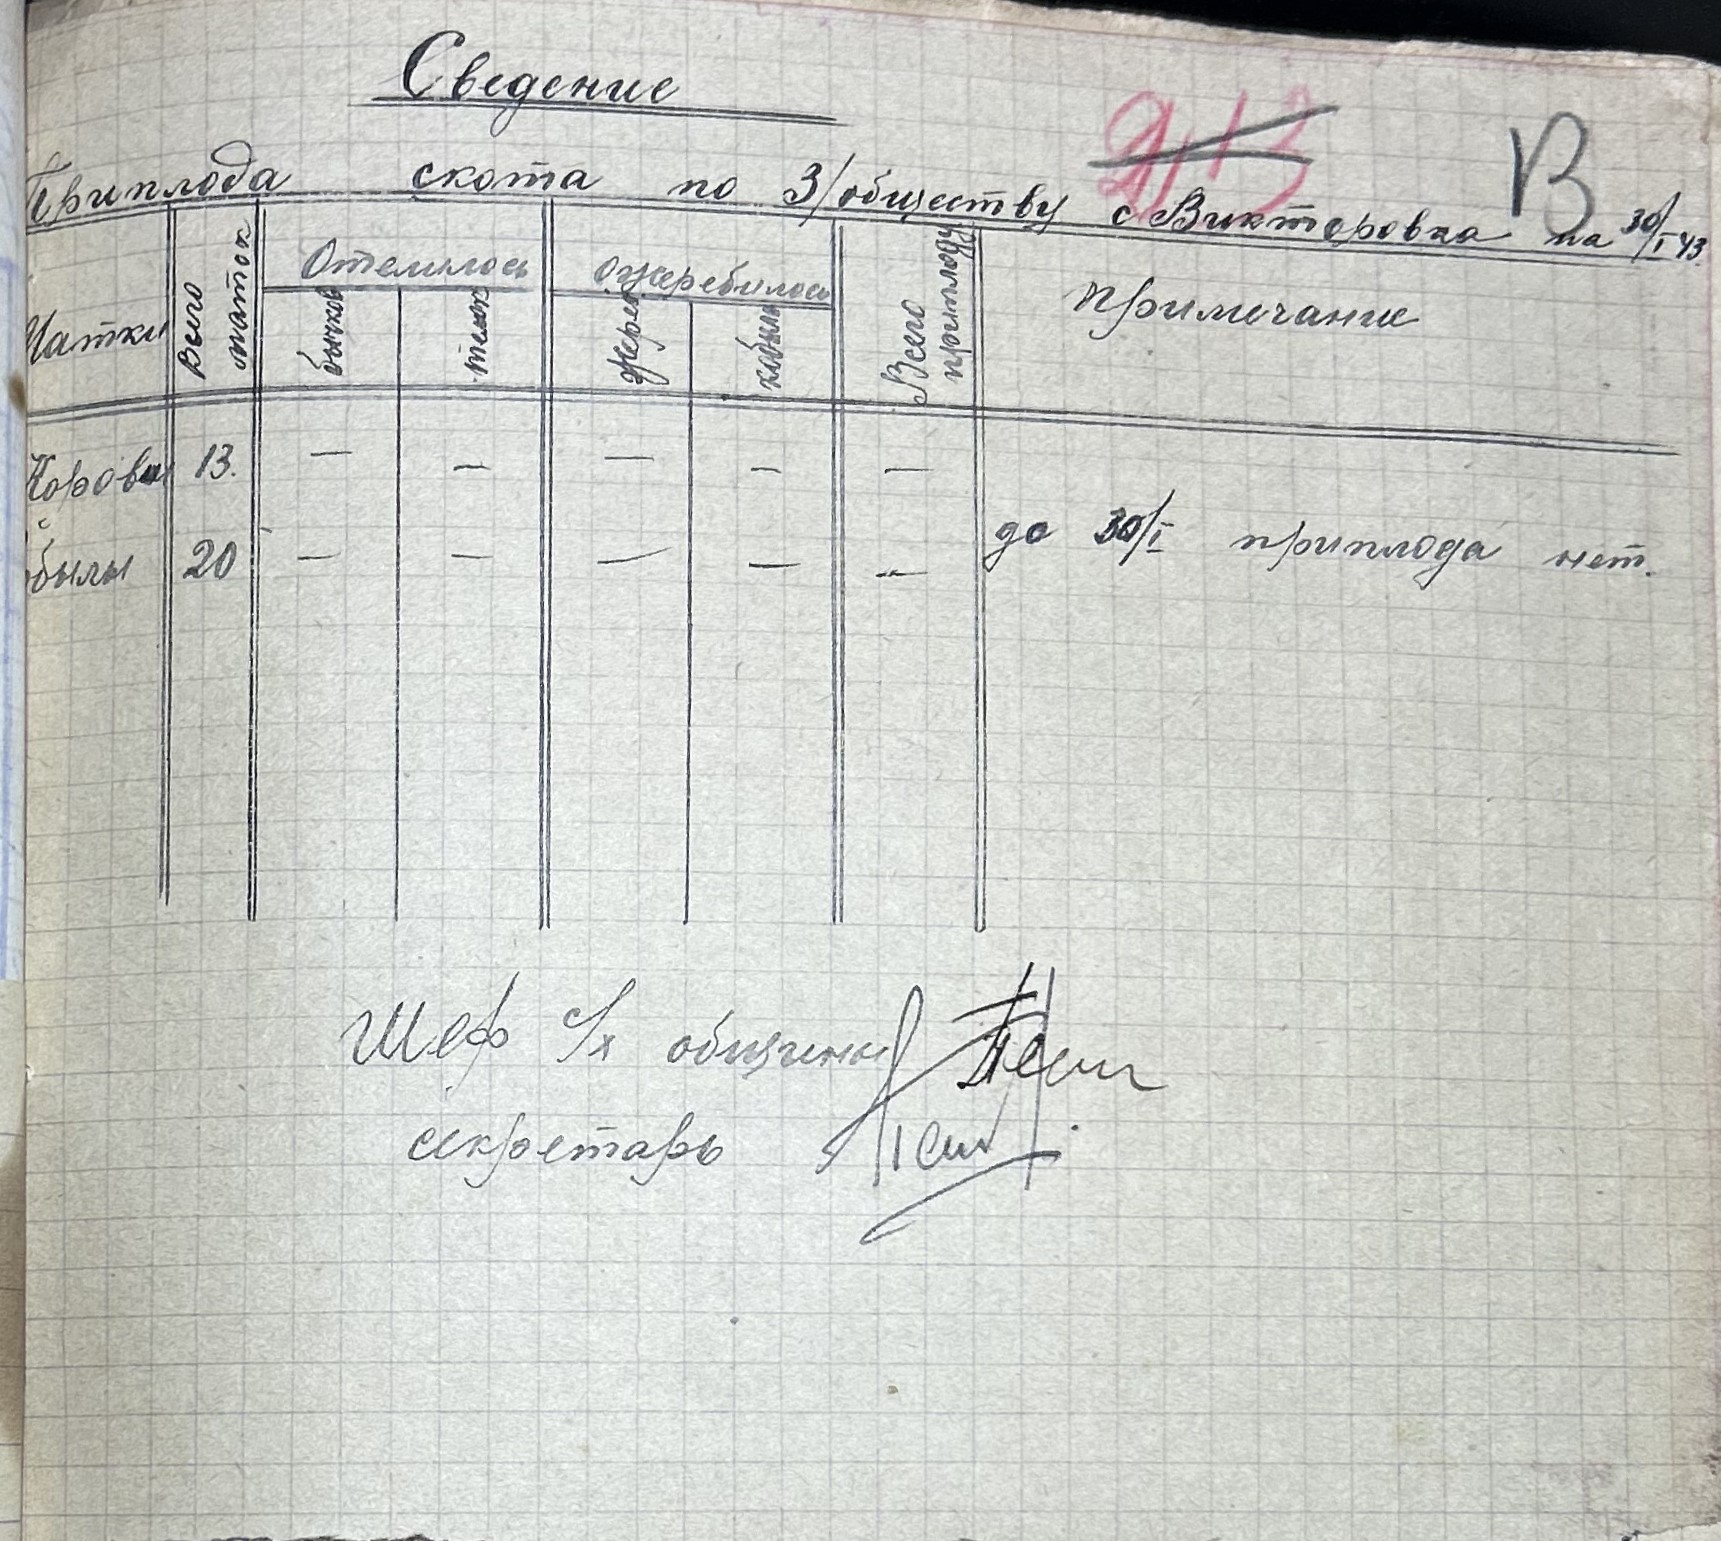 Сведение
В
Приплода скота по З/обществу с Викторовка на 30/I 43.
Матки
Всего маток
Отелилось
Ожеребилось
Всего приплоду
Примечание
бычков
телок
жереб
кобыл
Коровы 13. — — — — —
былы 20 — — — — — до 30/I приплода нет.
Шеф с/х общины
секретарь